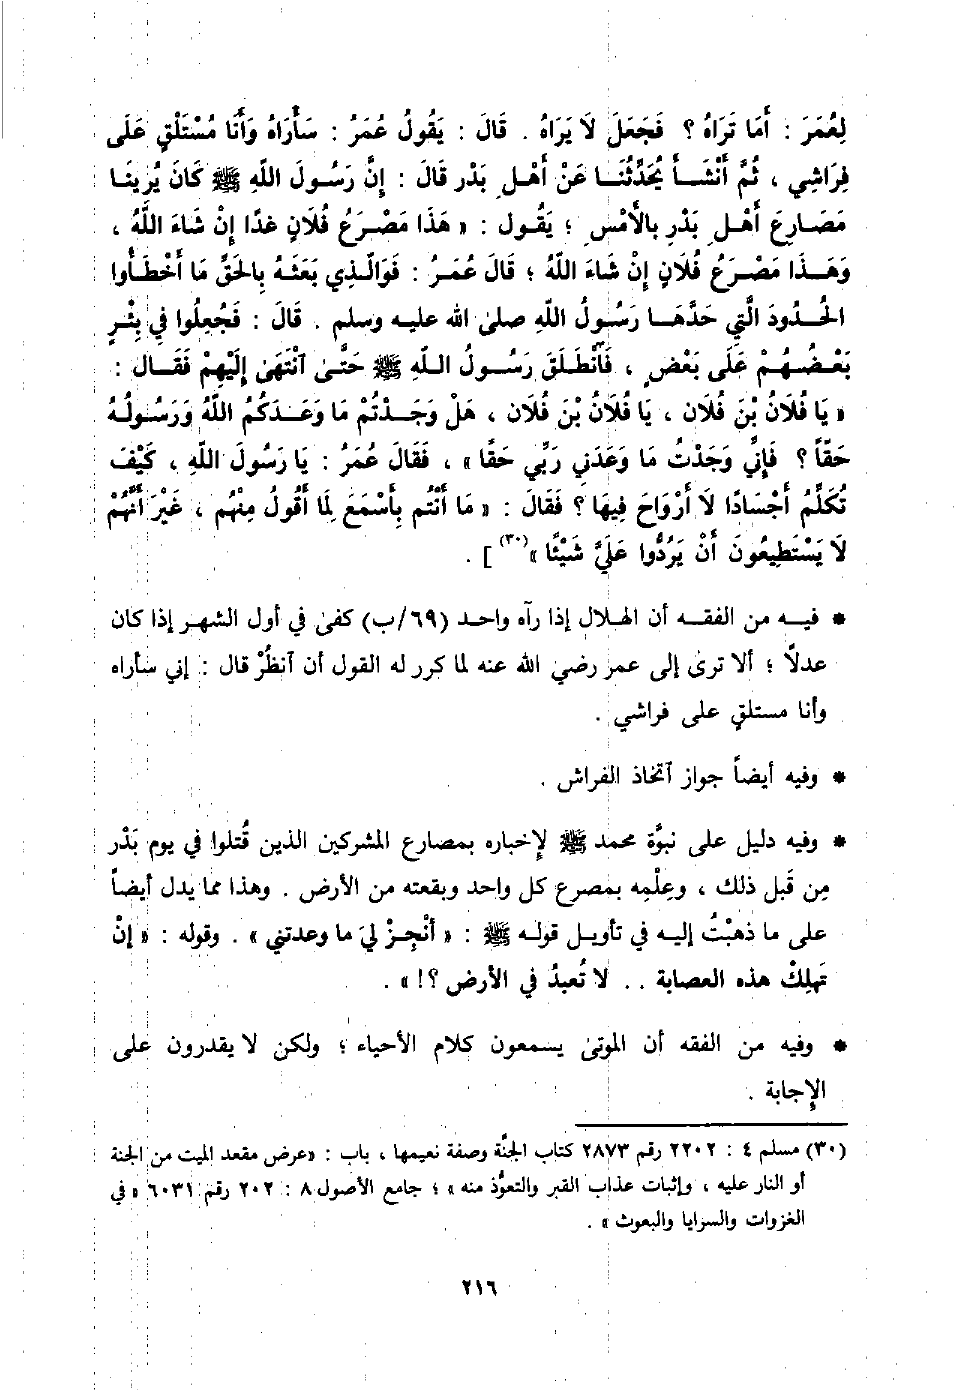 لِعُمَرَ : أَمَا تَرَاهُ ؟ فَجَعَلَ لَا يَرَاهُ . قَالَ : يَقُولُ عُمَرُ : سَأَرَاهُ وَأَنَا مُسْتَلْقٍ عَلَى
فِرَاشِي ، ثُمَّ أَنْشَأَ يُحَدِّثُنَا عَنْ أَهْلِ بَدْرٍ قَالَ : إِنَّ رَسُولَ اللَّهِ ﷺ كَانَ يُرِينَا
مَصَارِعَ أَهْلِ بَدْرٍ بِالأَمْسِ ؛ يَقُول : « هَذَا مَصْرَعُ فُلَانٍ غدًا إِنْ شَاءَ اللَّهُ ،
وَهَذَا مَصْرَعُ فُلَانٍ إِنْ شَاءَ اللَّهُ ؛ قَالَ عُمَرُ : فَوَالَّذِي بَعَثَهُ بِالحَقِّ مَا أَخْطَأُوا
الحُدُودَ الَّتِي حَدَّهَا رَسُولُ اللَّهِ صلى الله عليه وسلم . قَالَ : فَجُعِلُوا فِي بِئْرٍ
بَعْضُهُمْ عَلَى بَعْضٍ ، فَانْطَلَقَ رَسُولُ اللَّهِ ﷺ حَتَّى آنْتَهَىٰ إِلَيْهِمْ فَقَال :
« يَا فُلَانُ بْنَ فُلَان ، يَا فُلَانُ بْنَ فُلَان ، هَلْ وَجَدْتُمْ مَا وَعَدَكُمُ اللَّهُ وَرَسُولُهُ
حَقّاً ؟ فَإِنِّي وَجَدْتُ مَا وَعَدَنِي رَبِّي حَقًّا » ، فَقَالَ عُمَرُ : يَا رَسُولَ اللَّهِ ، كَيْفَ
تُكَلِّمُ أَجْسَادًا لَا أَرْوَاحَ فِيهَا ؟ فَقَالَ : « مَا أَنْتُم بِأَسْمَعَ لِمَا أَقُولُ مِنْهُم ، غَيْرَ أَنَّهُمْ
لَا يَسْتَطِيعُونَ أَنْ يَرُدُّوا عَلَيَّ شَيْئًا »(٣٠) ] .
* فيه من الفقه أن الهلال إذا رآه واحد (٦٩/ب) كفىٰ في أول الشهر إذا كان
عدلاً ؛ ألا ترىٰ إلى عمر رضي الله عنه لما كرر له القول أن آنظُرْ قال : إني سأراه
وأنا مستلقٍ على فراشي .
* وفيه أيضاً جواز آتخاذ الفراش .
* وفيه دليل على نبوَّة محمد ﷺ لإخباره بمصارع المشركين الذين قُتلوا في يوم بَدْر
مِن قَبل ذلك ، وعِلْمِه بمصرع كل واحد وبقعته من الأرض . وهذا مما يدل أيضاً
على ما ذهبْتُ إليه في تأويل قوله ﷺ : « أَنْجِزْ لِيَ ما وعدتني » . وقوله : « إنْ
تَهلِكْ هذه العصابة .. لا تُعبدُ في الأرض ؟! » .
* وفيه من الفقه أن الموتىٰ يسمعون كلام الأحياء ؛ ولكن لا يقدرون على
الإجابة .
(٣٠) مسلم ٤ : ٢٢٠٢ رقم ٢٨٧٣ كتاب الجنَّة وصفة نعيمها ، باب : «عرض مقعد الميت من الجنة
أو النار عليه ، وإثبات عذاب القبر والتعوُّذ منه » ؛ جامع الأصول ٨ : ٢٠٢ رقم ٦٠٣١ « في
الغزوات والسرايا والبعوث » .
٢١٦